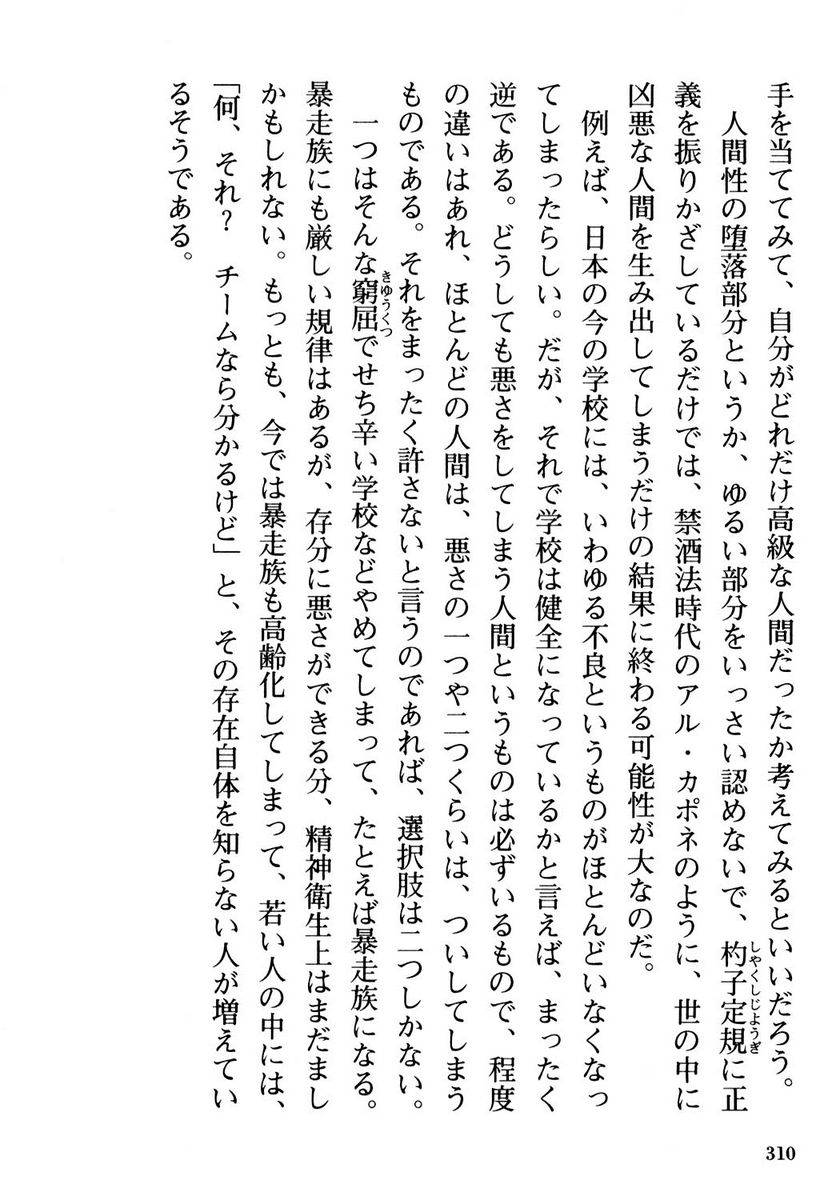 手を当ててみて、自分がどれだけ高級な人間だったか考えてみるといいだろう。
　人間性の堕落部分というか、ゆるい部分をいっさい認めないで、杓子定規に正
しやくしじようぎ
義を振りかざしているだけでは、禁酒法時代のアル・カポネのように、世の中に
凶悪な人間を生み出してしまうだけの結果に終わる可能性が大なのだ。
　例えば、日本の今の学校には、いわゆる不良というものがほとんどいなくなっ
てしまったらしい。だが、それで学校は健全になっているかと言えば、まったく
逆である。どうしても悪さをしてしまう人間というものは必ずいるもので、程度
の違いはあれ、ほとんどの人間は、悪さの一つや二つくらいは、ついしてしまう
ものである。それをまったく許さないと言うのであれば、選択肢は二つしかない。
　一つはそんな窮屈でせち辛い学校などやめてしまって、たとえば暴走族になる。
きゆうくつ
暴走族にも厳しい規律はあるが、存分に悪さができる分、精神衛生上はまだまし
かもしれない。もっとも、今では暴走族も高齢化してしまって、若い人の中には、
「何、それ？　チームなら分かるけど」と、その存在自体を知らない人が増えてい
るそうである。
310